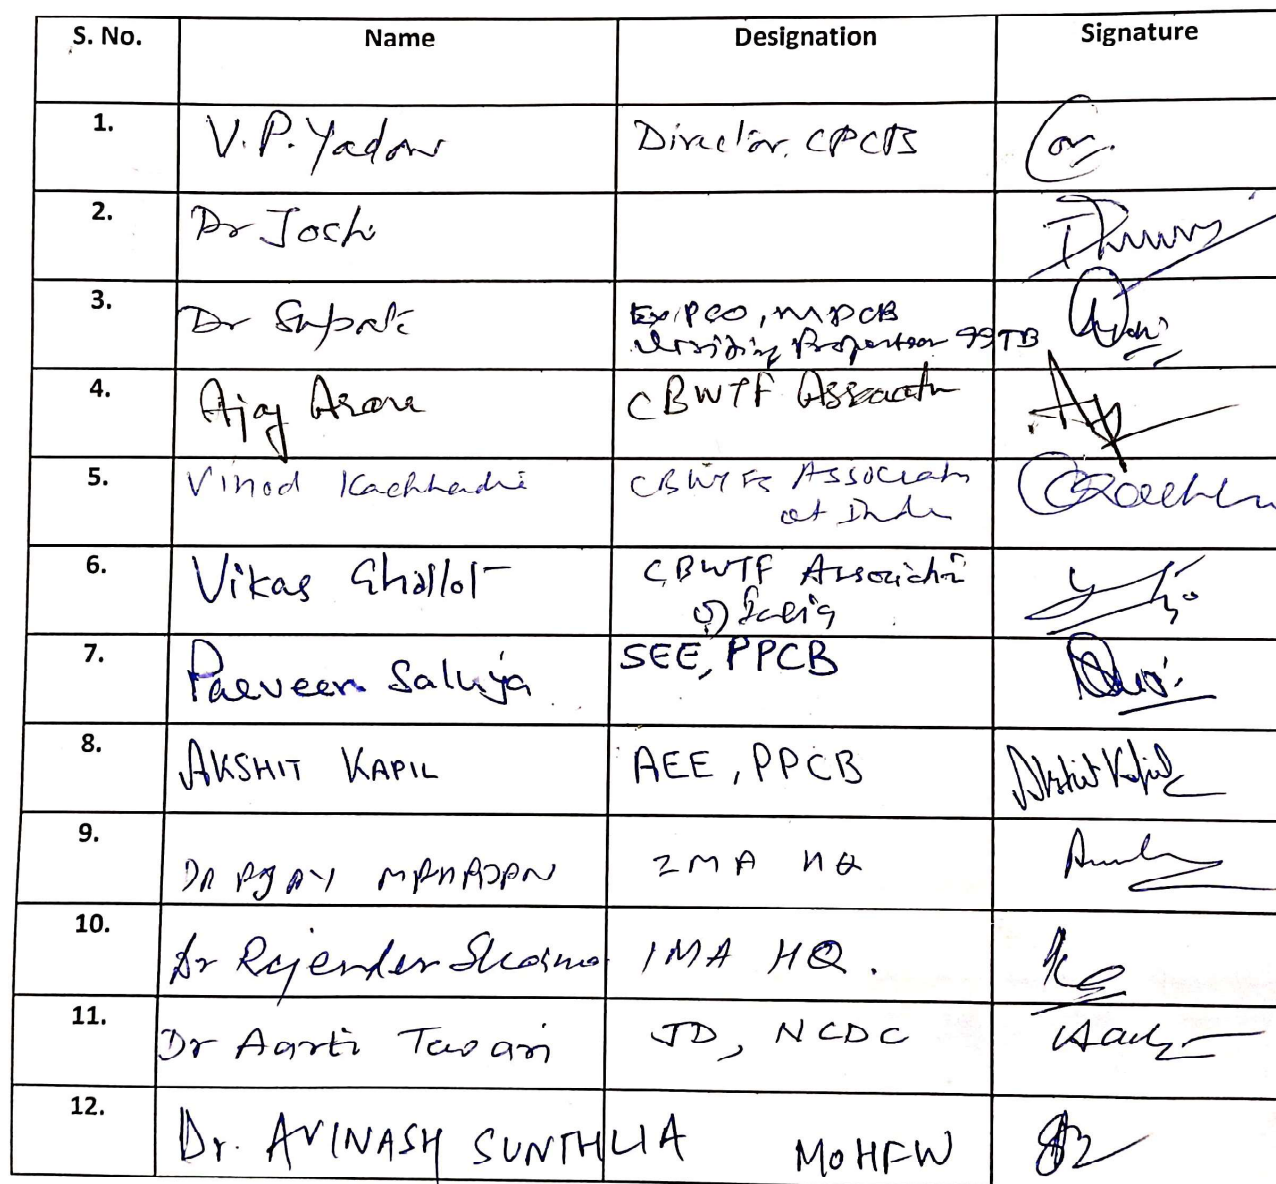 S. No. Name Designation Signature
1. V.P. Yadav Director, CPCB
2. Dr Joshi
3. Dr Supate Ex PCO, MPCB
Visiting Professor TB
4. Ajay CBWTF
5. Vinod Kachhadia CBWTFs Associat
of
6. Vikas Ghallot CBWTF
7. Parveen Saluja SEE, PPCB
8. AKSHIT KAPIL AEE, PPCB Akshit Kapil
9. DR AJAY MAHAJAN IMA HQ
10. Dr Rajender Sharma IMA HQ.
11. Dr Aarti Tewari JD, NCDC
12. Dr. AVINASH SUNTHLIA MOHFW